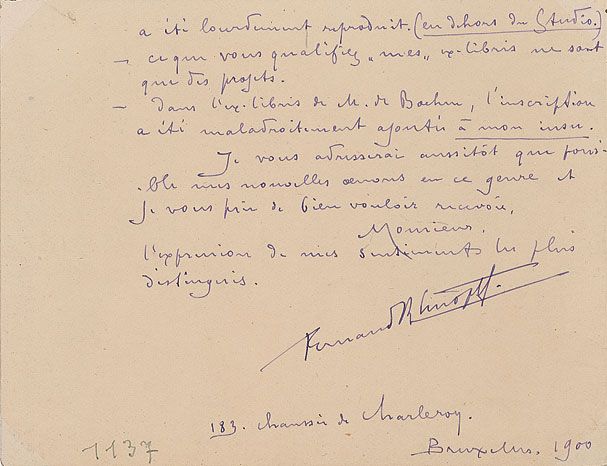 a été lourdement reproduit. (en dehors du Studio.)
– ce que vous qualifiez „mes„ ex-libris ne sont
que des projets.
– dans l'ex-libris de M. de Bachm, l'inscription
a été maladroitement ajoutée à mon insu.
Je vous adresserai aussitôt que possi-
ble mes nouvelles œuvres en ce genre et
je vous prie de bien vouloir recevoir,
Monsieur,
l'expression de mes sentiments les plus
distingués.
Fernand Khnopff.
183. chaussée de Charleroy.
1137
Bruxelles. 1900